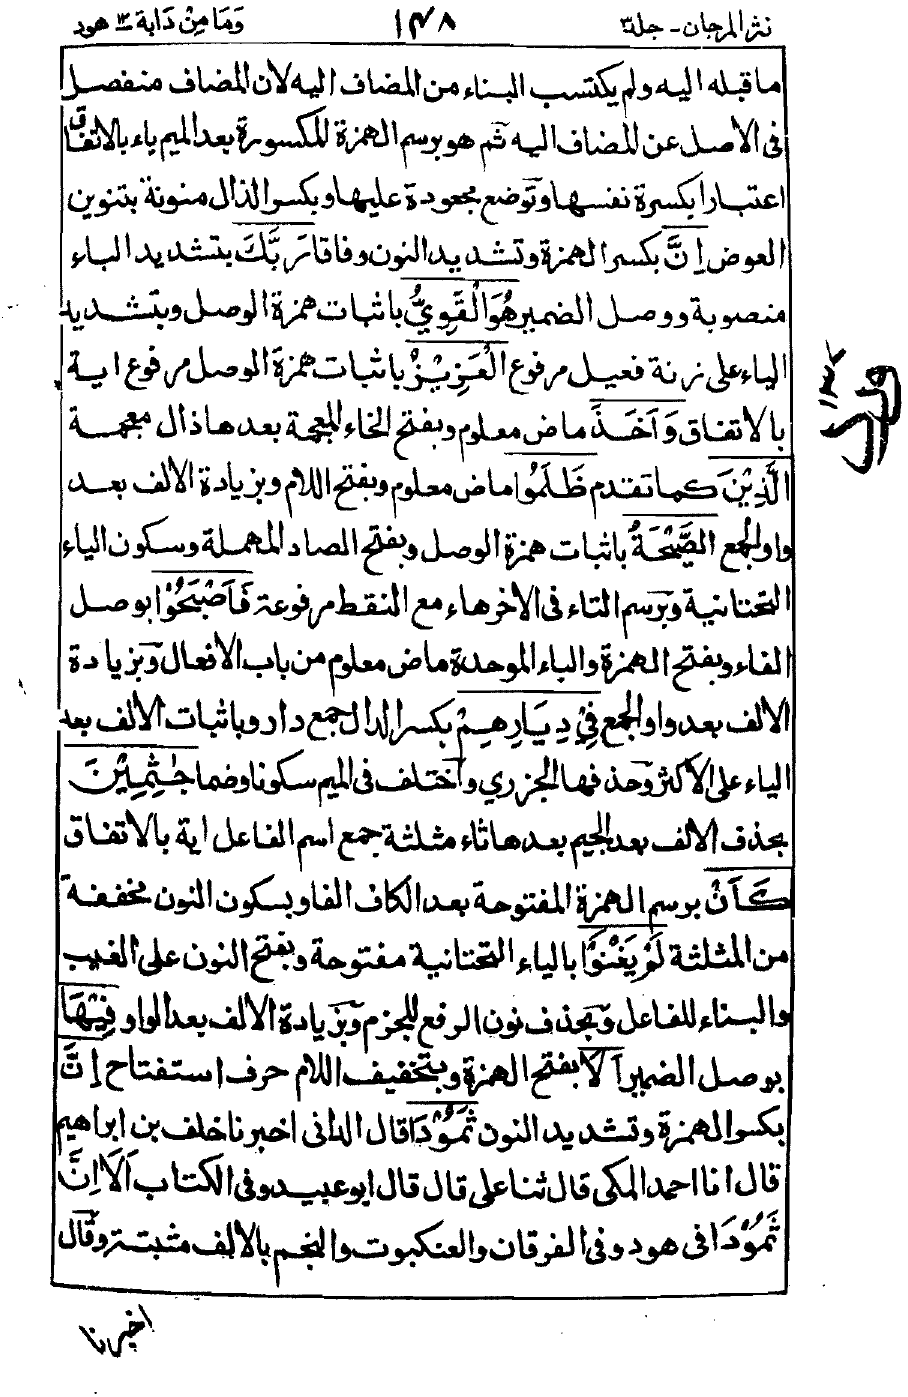 نثر المرجان - جلد ٣ ١٤٨ وَمَا مِنْ دَابة ١٢ هود
ما قبله اليه ولم يكتسب البناء من المضاف اليه لان المضاف منفصل
فى الاصل عن المضاف اليه ثم هو برسم الهمزة المكسورة بعد الميم ياء بالاتفاق
اعتبارا بكسرة نفسها وتوضع مجعودة عليها وبكسر الذال منونة بتنوين
العوض اِنَّ بكسر الهمزة وتشديد النون وفاقا رَبَّكَ بتشديد الباء
منصوبة ووصل الضمير هُوَ الْقَوِيُّ باثبات همزة الوصل وبتشديد
الياء على زنة فعيل مرفوع الْعَزِيْزُ باثبات همزة الوصل مرفوع اية
بالاتفاق وَاَخَذَ ماض معلوم وبفتح الخاء المعجمة بعدها ذال معجمة
الَّذِيْنَ كما تقدم ظَلَمُوْا ماض معلوم وبفتح اللام وبزيادة الالف بعد
واو الجمع الصَّيْحَةُ باثبات همزة الوصل وبفتح الصاد المهملة وسكون الياء
التحتانية وبرسم التاء فى الاخر هاء مع النقط مرفوعة فَاَصْبَحُوْا بوصل
الفاء وبفتح الهمزة والباء الموحدة ماض معلوم من باب الافعال وبزيادة
الالف بعد واو الجمع فِيْ دِيَارِهِمْ بكسر الدال جمع دار وباثبات الالف بعد
الياء على الاكثر وحذفها الجزري واختلف فى الميم سكونا وضما جٰثِمِيْنَ
بحذف الالف بعد الجيم بعدها ثاء مثلثة جمع اسم الفاعل اية بالاتفاق
كَاَنْ برسم الهمزة المفتوحة بعد الكاف الفا وبسكون النون مخففة
من المثلثة لَمْ يَغْنَوْا بالياء التحتانية مفتوحة وبفتح النون على الغيب
والبناء للفاعل وبحذف نون الرفع للجزم وبزيادة الالف بعد الواو فِيْهَا
بوصل الضمير اَلَا بفتح الهمزة وبتخفيف اللام حرف استفتاح اِنَّ
بكسر الهمزة وتشديد النون ثَمُوْدَا قال الدانى اخبرنا خلف بن ابراهيم
قال انا احمد المكى قال ثنا على قال قال ابو عبيد وفى الكتاب اَلَا اِنَّ
ثَمُوْدَا فى هود وفى الفرقان والعنكبوت والنجم بالالف مثبتة وقال
اخبرنا